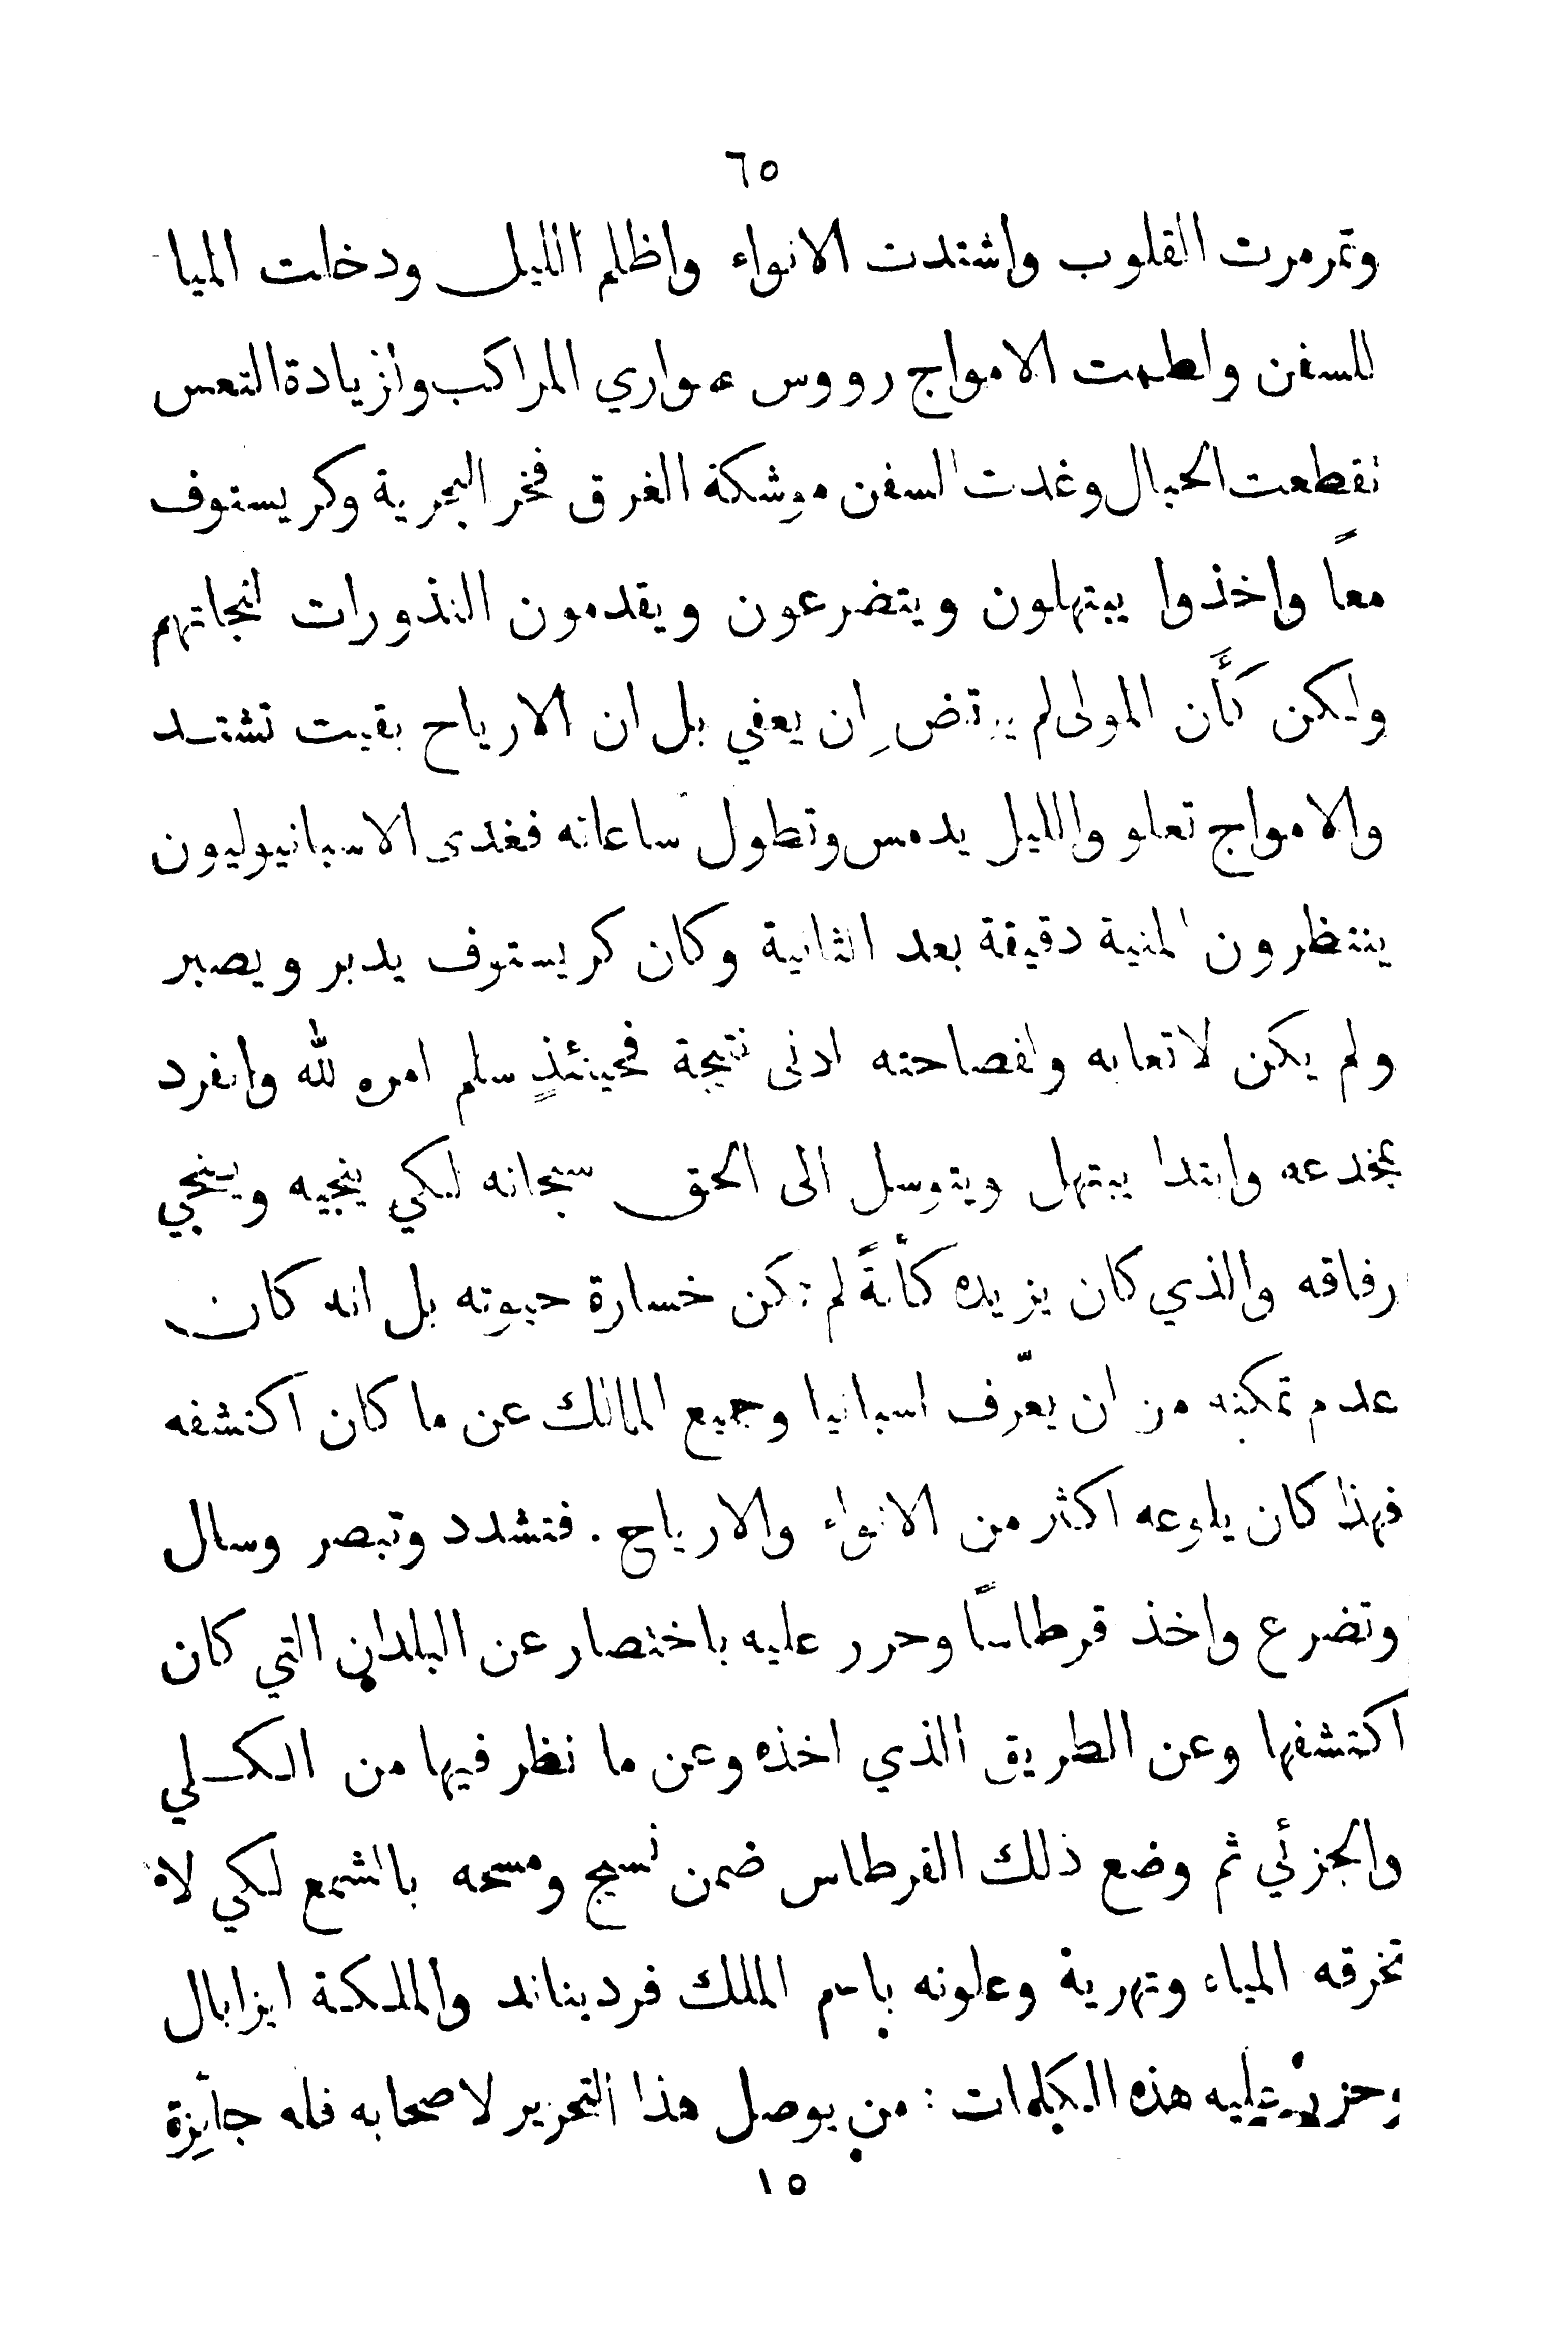 ٦٥
وتمرمرت القلوب واشتدت الانواء واظلم الليل ودخلت الميا
للسفن ولطمت الامواج رووس صواري المراكب ولزيادة التعس
تقطعت الحبال وغدت السفن موشكة الغرق فخر البحرية وكريستوف
معاً واخذوا يبتهلون ويتضرعون ويقدمون النذورات لنجاتهم
ولكن كأَن المولى لم يرتضِ ان يعفي بل ان الارياح بقيت تشتد
والامواج تعلو والليل يدمس وتطول ساعاته فغدى الاسبانيوليون
ينتظرون المنية دقيقة بعد الثانية وكان كريستوف يدبر ويصبر
ولم يكن لاتعابه ولفصاحته ادنى نتيجة فحينئذٍ سلم امره لله وانفرد
بمخدعه وابتدا يبتهل ويتوسل الى الحق سبحانه لكي ينجيه وينجي
رفاقه والذي كان يزيده كأبةً لم تكن خسارة حيوته بل انه كان
عدم تمكنه من ان يعرّف اسبانيا وجميع الممالك عن ما كان اكتشفه
فهذا كان يلوعه اكثر من الانواء والارياح . فتشدد وتبصر وسال
وتضرع واخذ قرطاساً وحرر عليه باختصار عن البلدان التي كان
اكتشفها وعن الطريق الذي اخذه وعن ما نظر فيها من الكلي
والجزئي ثم وضع ذلك القرطاس ضمن نسيج ومسحه بالشمع لكي لا
تخرقه المياه وتهرية وعلونه باسم الملك فرديناند والملكة ايزابال
وحرر عليه هذه الكلمات : من يوصل هذا التحرير لاصحابه فله جائزة
١٥